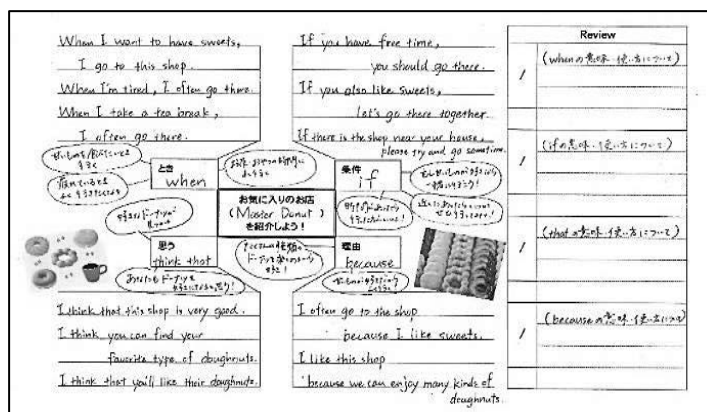 When I want to have sweets,
I go to this shop.
When I'm tired, I often go there.
When I take a tea break,
I often go there.
If you have free time,
you should go there.
If you also like sweets,
let's go there together.
If there is the shop near your house,
please try and go sometime.
とき
when
条件
if
お気に入りのお店
(Master Donut)
を紹介しよう!
思う
think that
理由
because
I think that this shop is very good.
I think you can find your
favorite type of doughnuts.
I think that you'll like their doughnuts.
I often go to the shop
because I like sweets.
I like this shop
because we can enjoy many kinds of
doughnuts.
Review
/
(whenの意味・使い方について)
/
(ifの意味・使い方について)
/
(thatの意味・使い方について)
/
(becauseの意味・使い方について)